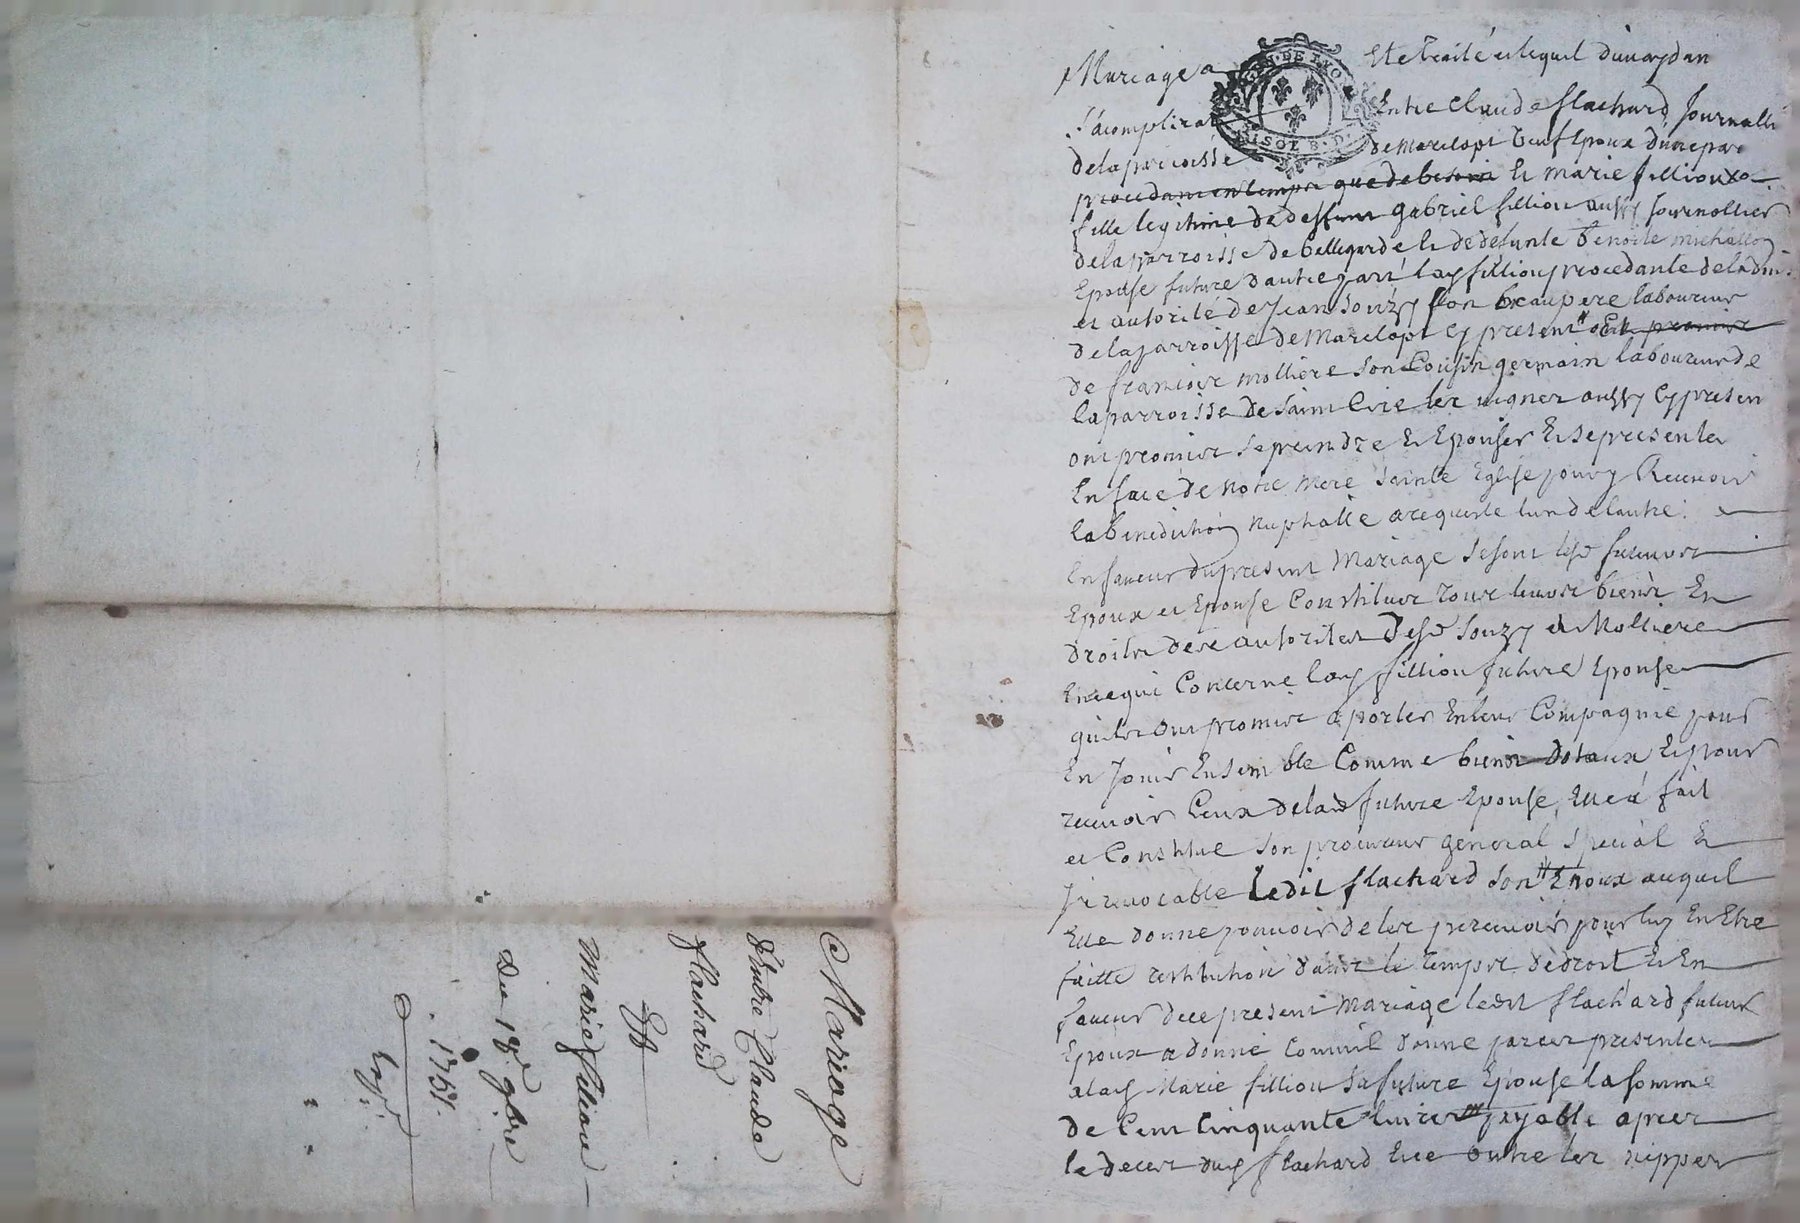 Mariage a Ete traité et lequel dieu aydan
s'acomplira Entre Claude flachard Journallie
GEN DE LYO
SOL 8 D
dela parroisse de Marclopt veuf Epoux d'une par
procedant en temps que de besoin Et marie fillioux
fille legitime de deffunt gabriel filliou aussy Journallier
dela parroisse de bellegarde et de defunte benoite michallon
Epouse future d'autre part lad filliou procedante de ladvis
et autorité de Jean Souzy son beaupere laboureur
dela parroisse de Marclopt cy present et promis
de francois molliere son Cousin germain laboureur de
la parroisse de Saint Cire les vignes aussy cy presen
ont promis se prendre Et Epouser Et se presenter
En face de notre mere Sainte Eglise pour y Recevoir
la benediction nuptialle a requeste lun de lautre
En faveur du present Mariage se sont lesd futeurs
Epoux et Epouse Constitues tous leurs biens En
droits dere autorites desd Souzy et Molliere
En ce qui Concerne lad filliou future Epouse
quils ont promis aporter En leur Compagnie pour
En Jouir Ensemble Comme biens dotaux Et pour
recevoir Ceux delad future Epouse, Elle a fait
et Constitue son procureur general special Et
Irrevocable Ledit flachard son Epoux auquel
Elle donne pouvoir de les percevoir pour luy En Etre
faitte restitution dans le temps de droit Et En
faveur de ce present Mariage ledit flachard futur
Epoux a donné Comme Il donne par ces presentes
a lad Marie filliou sa future Epouse la somme
de Cent Cinquante livres payable apres
le deces dud flachard Elle outre les nippes
Mariage
d'Entre Claude
flachard
Et
Marie filliou
Du 18e 9bre
1751.